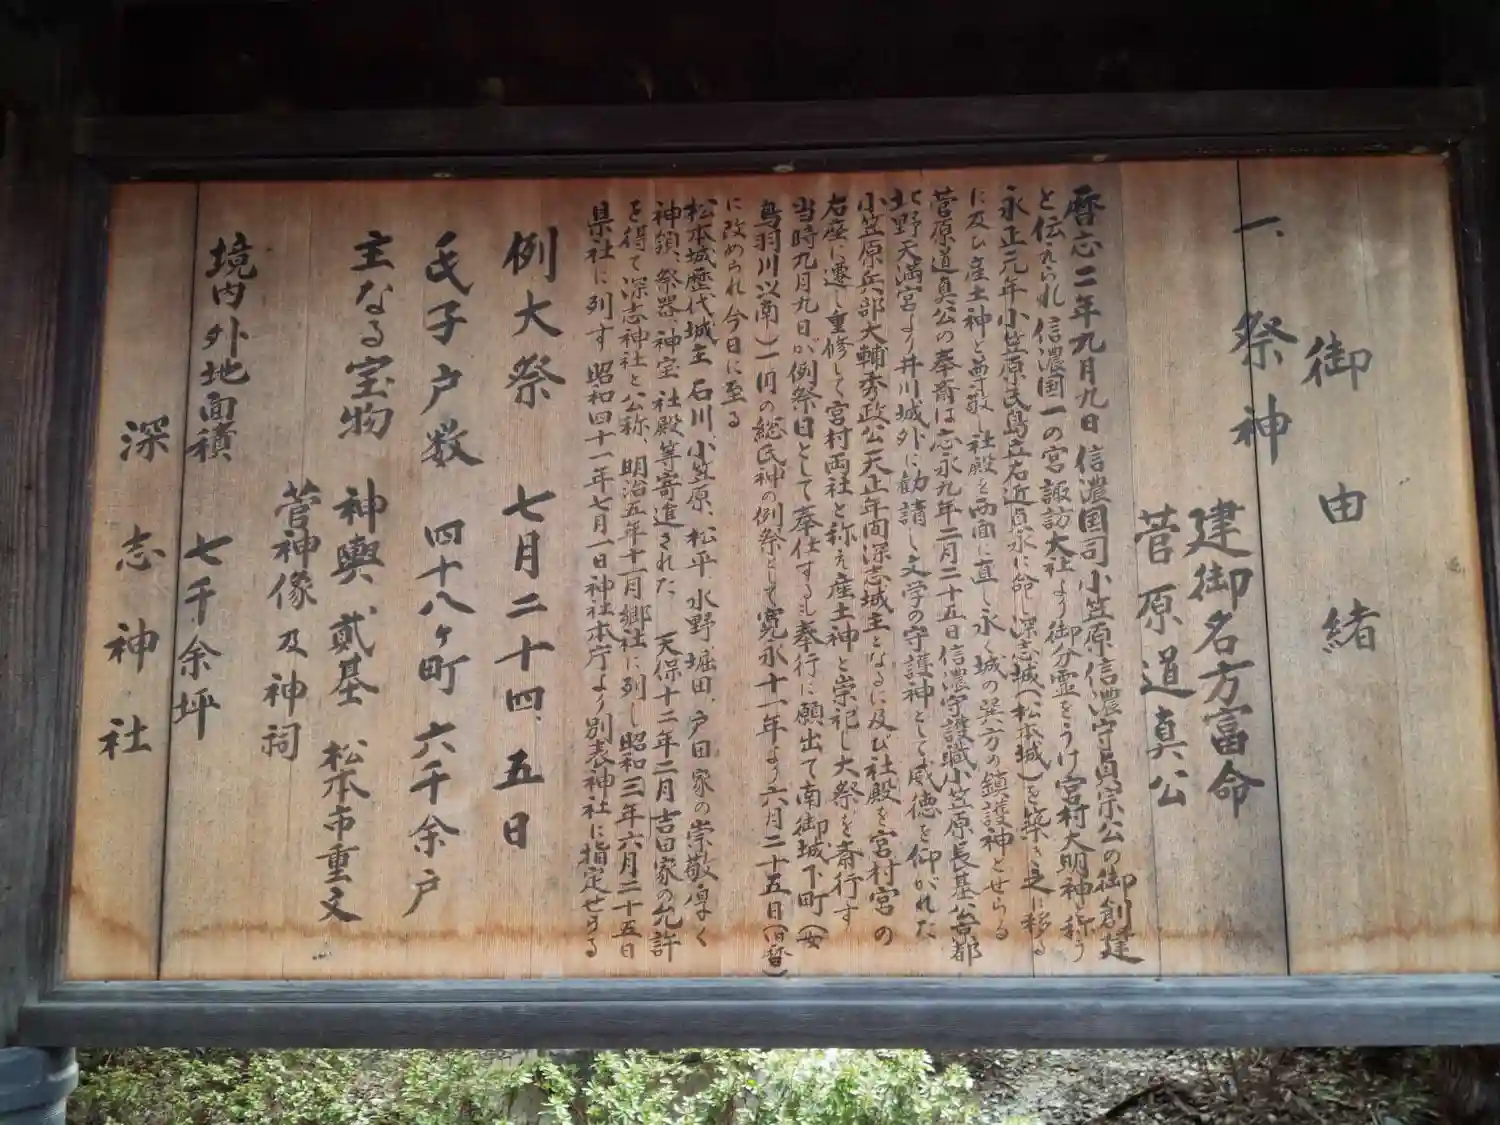 御由緒
一、祭神
建御名方富命
菅原道真公
暦応二年九月九日信濃国司小笠原信濃守貞宗公の御創建
と伝えられ信濃国一の宮諏訪大社より御分霊をうけ宮村大明神と称う
永正元年小笠原氏島立右近貞永に命じ深志城(松本城)を築き之に移る
に及び産土神と尊敬し社殿を西面に直し永く城の巽方の鎮護神とせらる
菅原道真公の奉斎は応永九年二月二十五日信濃守護職小笠原長基公京都
北野天満宮より井川城外に勧請し文学の守護神として威徳を仰がれた
小笠原兵部大輔秀政公天正年間深志城主となるに及び社殿を宮村宮の
右座に遷し重修して宮村両社と称え産土神と崇祀し大祭を斎行す
当時九月九日が例祭日として奉仕するも奉行に願出て南御城下町(女
鳥羽川以南)一円の総氏神の例祭として寛永十一年より六月二十五日(旧暦)
に改められ今日に至る
松本城歴代城主石川、小笠原、松平、水野、堀田、戸田家の崇敬厚く
神領、祭器、神宝、社殿等寄進された 天保十二年二月吉田家の允許
を得て深志神社と公称、明治五年十一月郷社に列し昭和三年六月二十五日
県社に列す 昭和四十一年七月一日神社本庁より別表神社に指定せらる
例大祭 七月二十四、五日
氏子戸数 四十八ヶ町 六千余戸
主なる宝物 神輿 貳基 松本市重文
菅神像及神祠
境内外地面積 七千余坪
深志神社